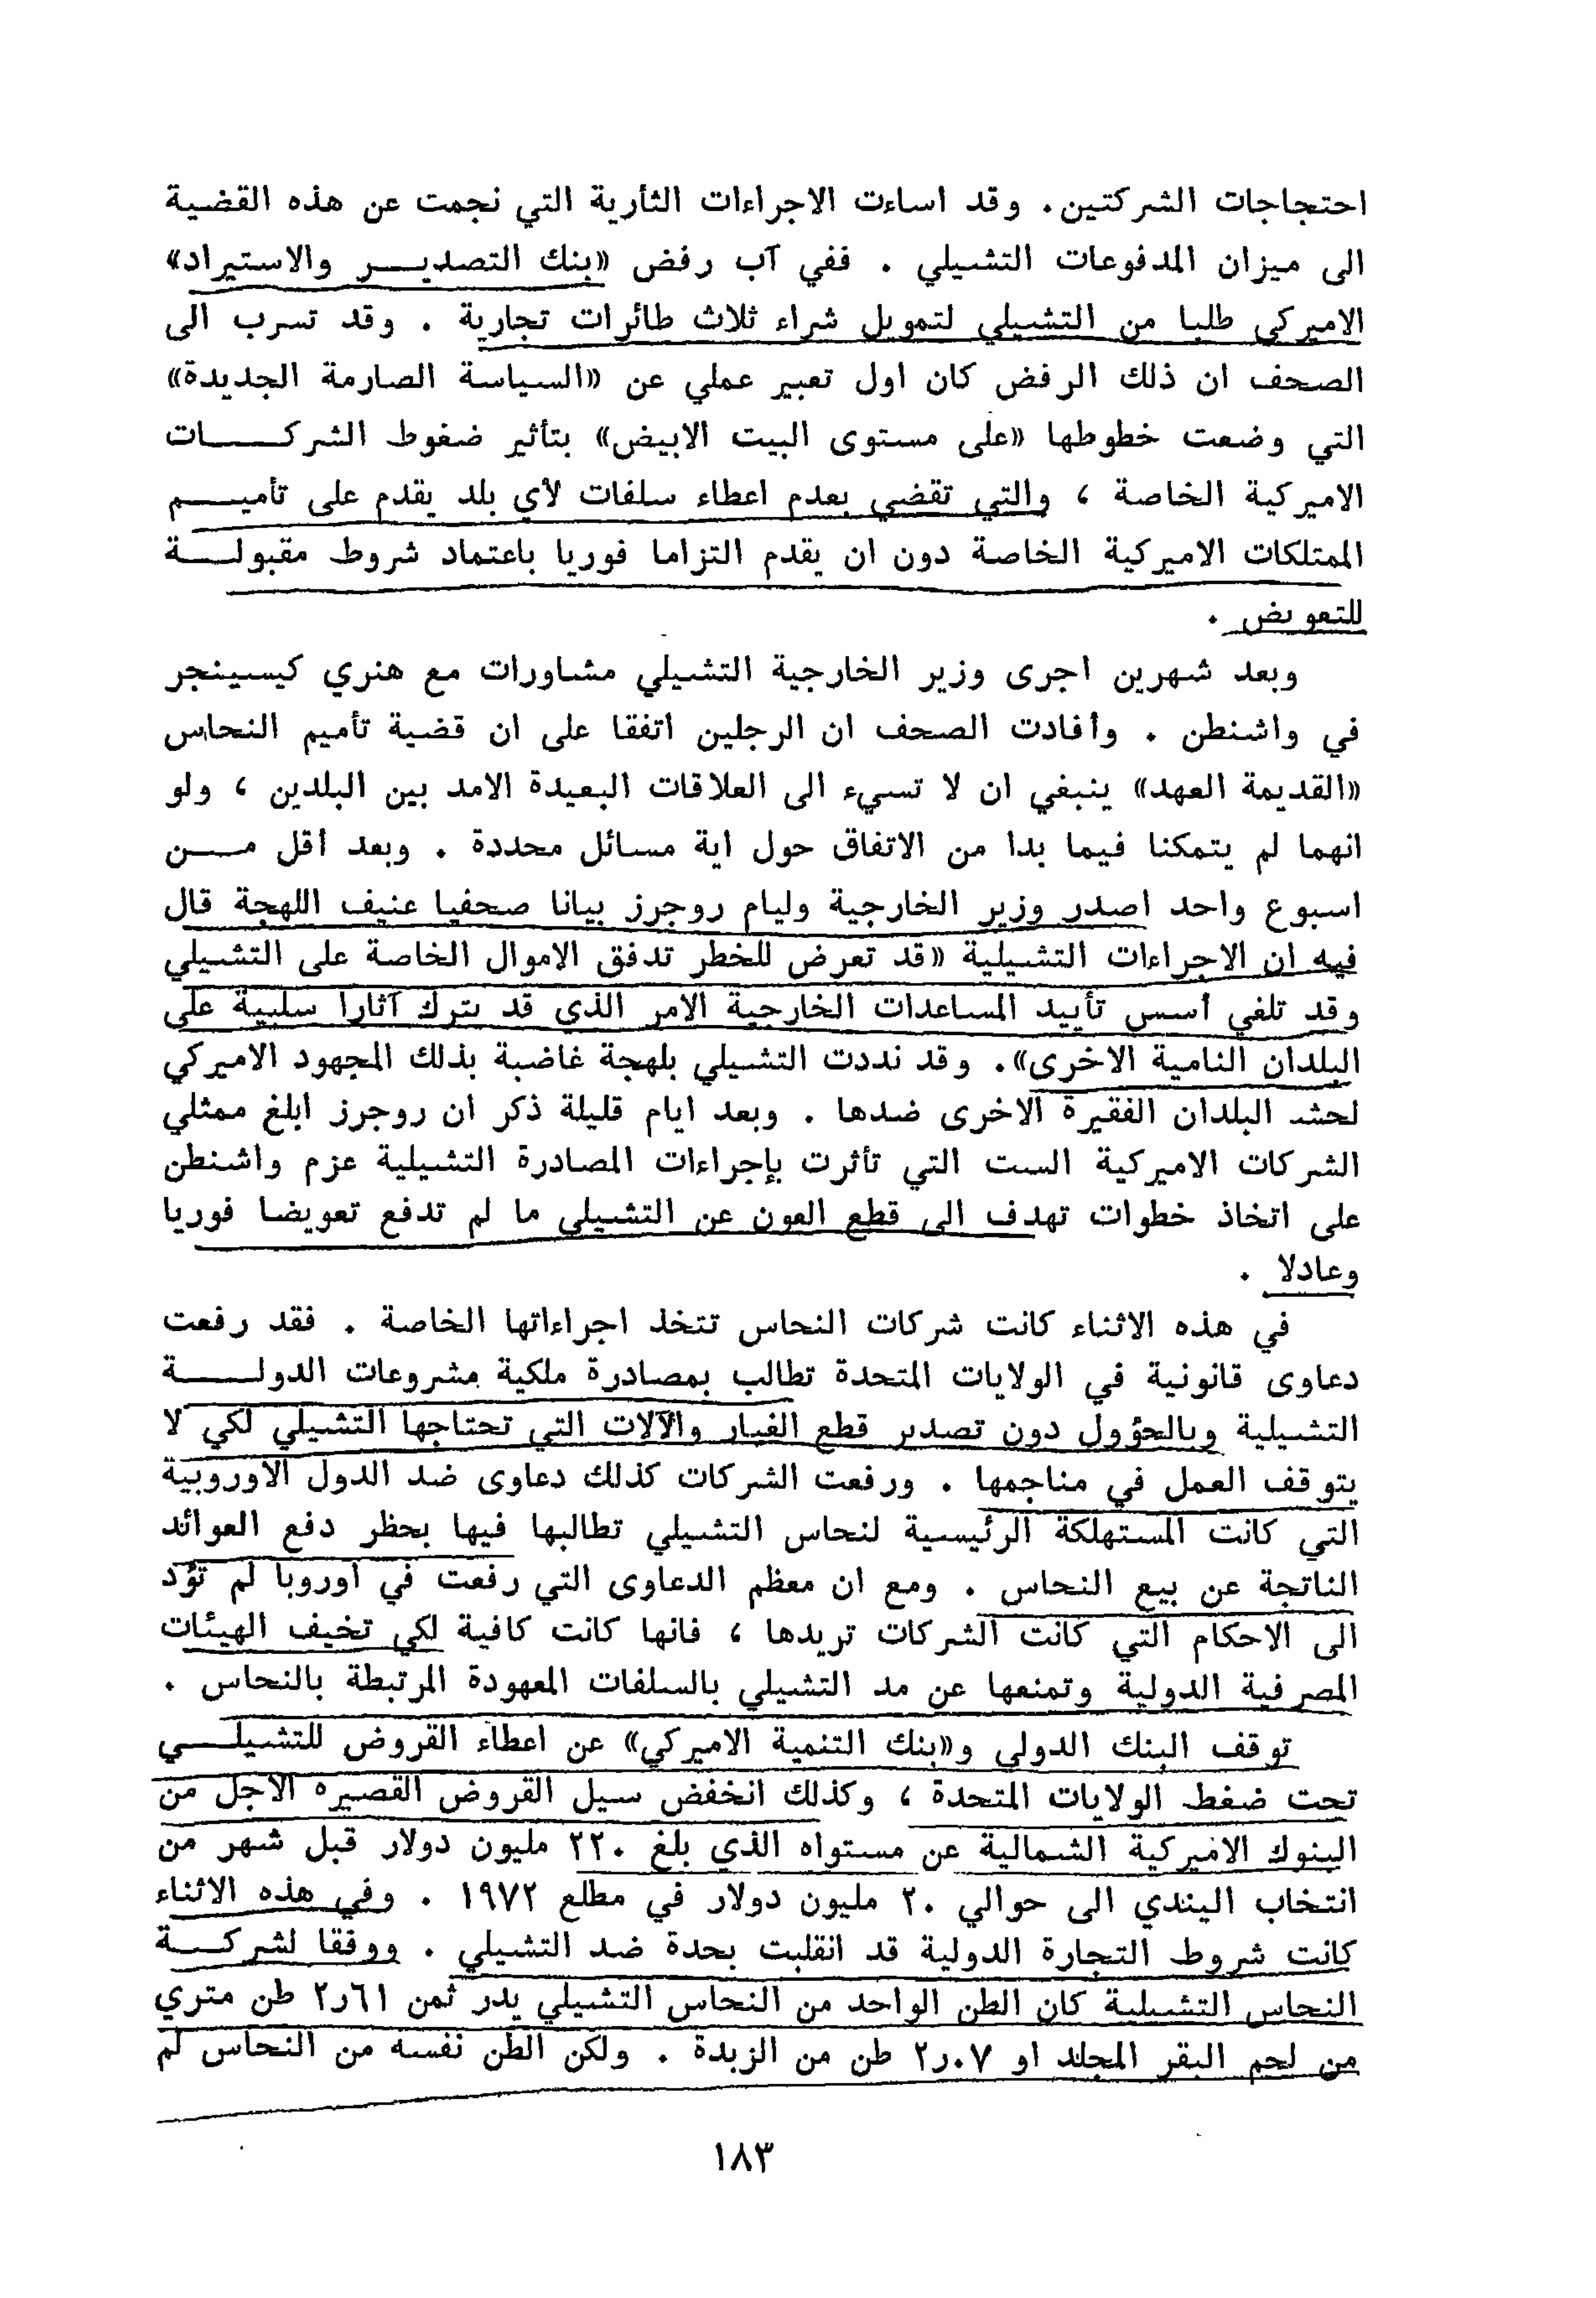 احتجاجات الشركتين. وقد اساءت الاجراءات الثأرية التي نجمت عن هذه القضية
الى ميزان المدفوعات التشيلي . ففي آب رفض «بنك التصديـــر والاستيراد»
الاميركي طلبا من التشيلي لتمويل شراء ثلاث طائرات تجارية . وقد تسرب الى
الصحف ان ذلك الرفض كان اول تعبير عملي عن «السياسة الصارمة الجديدة»
التي وضعت خطوطها «على مستوى البيت الابيض» بتأثير ضغوط الشركــــات
الاميركية الخاصة ، والتي تقضي بعدم اعطاء سلفات لأي بلد يقدم على تأميـــم
الممتلكات الاميركية الخاصة دون ان يقدم التزاما فوريا باعتماد شروط مقبولــة
للتعويض .
وبعد شهرين اجرى وزير الخارجية التشيلي مشاورات مع هنري كيسينجر
في واشنطن . وأفادت الصحف ان الرجلين اتفقا على ان قضية تأميم النحاس
«القديمة العهد» ينبغي ان لا تسيء الى العلاقات البعيدة الامد بين البلدين ، ولو
انهما لم يتمكنا فيما بدا من الاتفاق حول اية مسائل محددة . وبعد أقل مـــن
اسبوع واحد اصدر وزير الخارجية وليام روجرز بيانا صحفيا عنيف اللهجة قال
فيه ان الاجراءات التشيلية «قد تعرض للخطر تدفق الاموال الخاصة على التشيلي
وقد تلغي أسس تأييد المساعدات الخارجية الامر الذي قد يترك آثارا سلبية على
البلدان النامية الاخرى». وقد نددت التشيلي بلهجة غاضبة بذلك المجهود الاميركي
لحشد البلدان الفقيرة الاخرى ضدها . وبعد ايام قليلة ذكر ان روجرز ابلغ ممثلي
الشركات الاميركية الست التي تأثرت بإجراءات المصادرة التشيلية عزم واشنطن
على اتخاذ خطوات تهدف الى قطع العون عن التشيلي ما لم تدفع تعويضا فوريا
وعادلا .
في هذه الاثناء كانت شركات النحاس تتخذ اجراءاتها الخاصة . فقد رفعت
دعاوى قانونية في الولايات المتحدة تطالب بمصادرة ملكية مشروعات الدولـــة
التشيلية وبالحؤول دون تصدير قطع الغيار والآلات التي تحتاجها التشيلي لكي لا
يتوقف العمل في مناجمها . ورفعت الشركات كذلك دعاوى ضد الدول الاوروبية
التي كانت المستهلكة الرئيسية لنحاس التشيلي تطالبها فيها بحظر دفع العوائد
الناتجة عن بيع النحاس . ومع ان معظم الدعاوى التي رفعت في اوروبا لم تؤد
الى الاحكام التي كانت الشركات تريدها ، فانها كانت كافية لكي تخيف الهيئات
المصرفية الدولية وتمنعها عن مد التشيلي بالسلفات المعهودة المرتبطة بالنحاس .
توقف البنك الدولي و«بنك التنمية الاميركي» عن اعطاء القروض للتشيلـــي
تحت ضغط الولايات المتحدة ، وكذلك انخفض سيل القروض القصيره الاجل من
البنوك الاميركية الشمالية عن مستواه الذي بلغ ٢٢٠ مليون دولار قبل شهر من
انتخاب اليندي الى حوالي ٢٠ مليون دولار في مطلع ١٩٧٢ . وفي هذه الاثناء
كانت شروط التجارة الدولية قد انقلبت بحدة ضد التشيلي . ووفقا لشركـــة
النحاس التشيلية كان الطن الواحد من النحاس التشيلي يدر ثمن ٦١ر٢ طن متري
من لحم البقر المجلد او ٠٧ر٢ طن من الزبدة . ولكن الطن نفسه من النحاس لم
١٨٣